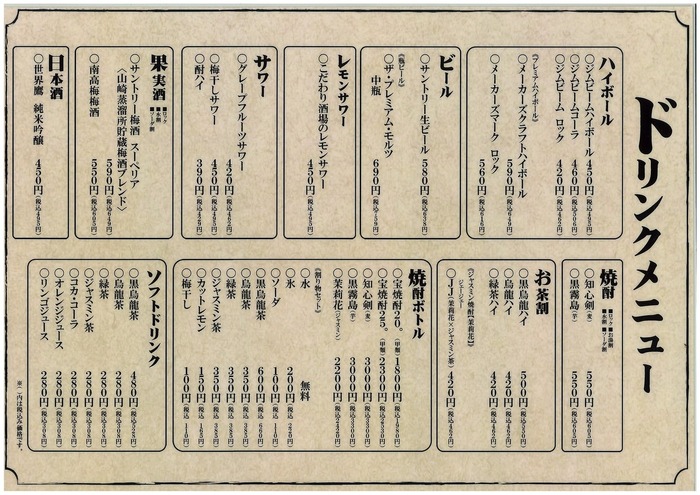 ドリンクメニュー
ハイボール
○ジムビームハイボール 450円(税込495円)
○ジムビームコーラ 460円(税込506円)
○ジムビーム ロック 420円(税込462円)
《プレミアムハイボール》
○メーカーズクラフトハイボール
590円(税込649円)
○メーカーズマーク ロック
560円(税込616円)
ビール
○サントリー生ビール 580円(税込638円)
《瓶ビール》
○ザ・プレミアム・モルツ
中瓶 690円(税込759円)
レモンサワー
○こだわり酒場のレモンサワー
450円(税込495円)
サワー
○グレープフルーツサワー
420円(税込462円)
○梅干しサワー 450円(税込495円)
○酎ハイ 390円(税込429円)
果実酒
■ロック
■水割
■ソーダ割
○サントリー梅酒 スーペリア
〈山崎蒸溜所貯蔵梅酒ブレンド〉
590円(税込649円)
○南高梅梅酒 550円(税込605円)
日本酒
○世界鷹 純米吟醸 450円(税込495円)
焼酎
■ロック ■お湯割
■水割 ■ソーダ割
○知心剣(麦) 550円(税込605円)
○黒霧島(芋) 550円(税込605円)
お茶割
○黒烏龍ハイ 500円(税込550円)
○烏龍ハイ 420円(税込462円)
○緑茶ハイ 420円(税込462円)
《ジャスミン焼酎【茉莉花】》
○JJ(茉莉花×ジャスミン茶)
420円(税込462円)
焼酎ボトル
宝焼酎20°(甲類) 1800円(税込1980円)
宝焼酎25°(甲類) 2300円(税込2530円)
知心剣(麦) 3000円(税込3300円)
黒霧島(芋) 3000円(税込3300円)
茉莉花(ジャスミン) 2200円(税込2420円)
《割り物セット》
○水 無料
○氷 200円(税込220円)
○ソーダ 100円(税込110円)
○黒烏龍茶 600円(税込660円)
○烏龍茶 350円(税込385円)
○緑茶 350円(税込385円)
○ジャスミン茶 350円(税込385円)
○カットレモン 150円(税込165円)
○梅干し 100円(税込110円)
ソフトドリンク
○黒烏龍茶 480円(税込528円)
○烏龍茶 280円(税込308円)
○緑茶 280円(税込308円)
○ジャスミン茶 280円(税込308円)
○コカ・コーラ 280円(税込308円)
○オレンジジュース 280円(税込308円)
○リンゴジュース 280円(税込308円)
※( )内は税込み価格です。